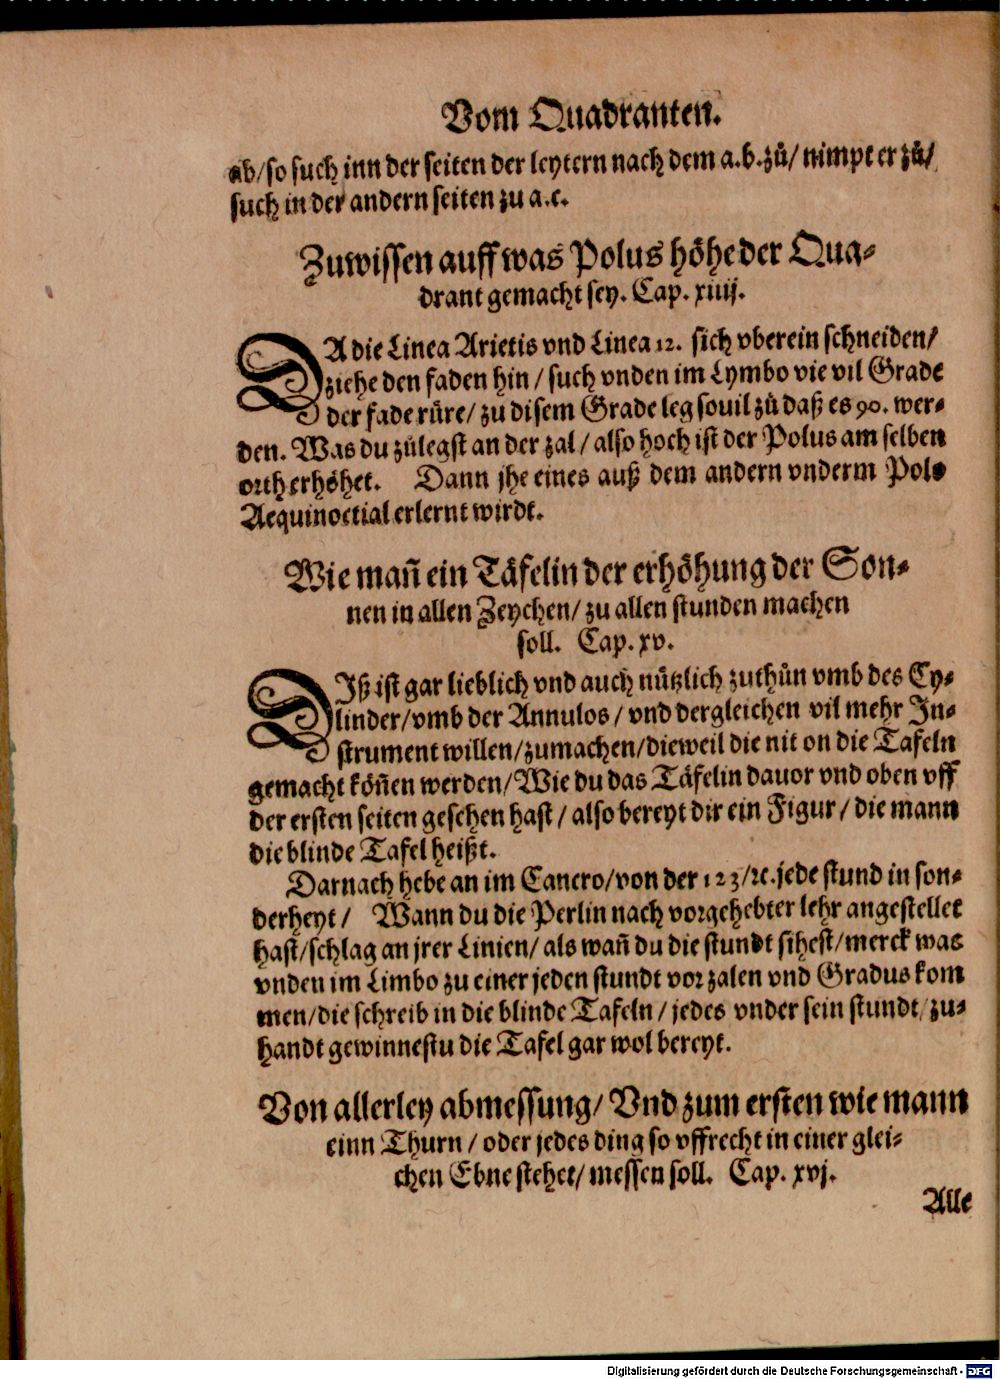 Vom Quadranten.
ab/so such inn der seiten der leytern nach dem a.b.zů/ nimpt er zů/
such in der andern seiten zu a.c.
Zuwissen auff was Polus höhe der Qua⸗
drant gemacht sey. Cap. xiiij.
DA die Linea Arietis vnd Linea 12. sich vberein schneiden/
ziehe den faden hin / such vnden im Lymbo vie vil Grade
der fade rüre/ zu disem Grade leg souil zů daß es 90. wer⸗
den. Was du zůlegst an der zal / also hoch ist der Polus am selben
orth erhöhet. Dann jhe eines auß dem andern vnderm Polo
Aequinoctial erlernt wirdt.
Wie mañ ein Täfelin der erhöhung der Son⸗
nen in allen Zeychen/ zu allen stunden machen
soll. Cap. xv.
DIß ist gar lieblich vnd auch nützlich zuthůn vmb des Cy⸗
linder/vmb der Annulos / vnd dergleichen vil mehr In⸗
strument willen/zumachen/dieweil die nit on die Tafeln
gemacht köñen werden/Wie du das Täfelin dauor vnd oben vff
der ersten seiten gesehen hast / also bereyt dir ein Figur / die mann
die blinde Tafel heißt.
Darnach hebe an im Cancro/von der 12 3/ꝛc.jede stund in son⸗
derheyt / Wann du die Perlin nach vorgehebter lehr angestellet
hast/schlag an jrer Linien/ als wañ du die stundt sihest/merck was
vnden im Limbo zu einer jeden stundt vor zalen vnd Gradus kom
men/die schreib in die blinde Tafeln / jedes vnder sein stundt/zu⸗
handt gewinnestu die Tafel gar wol bereyt.
Von allerley abmessung/ Vnd zum ersten wie mann
einn Thurn / oder jedes ding so vffrecht in einer glei⸗
chen Ebne stehet/ messen soll. Cap. xvj.
Alle
Digitalisierung gefördert durch die Deutsche Forschungsgemeinschaft - DFG